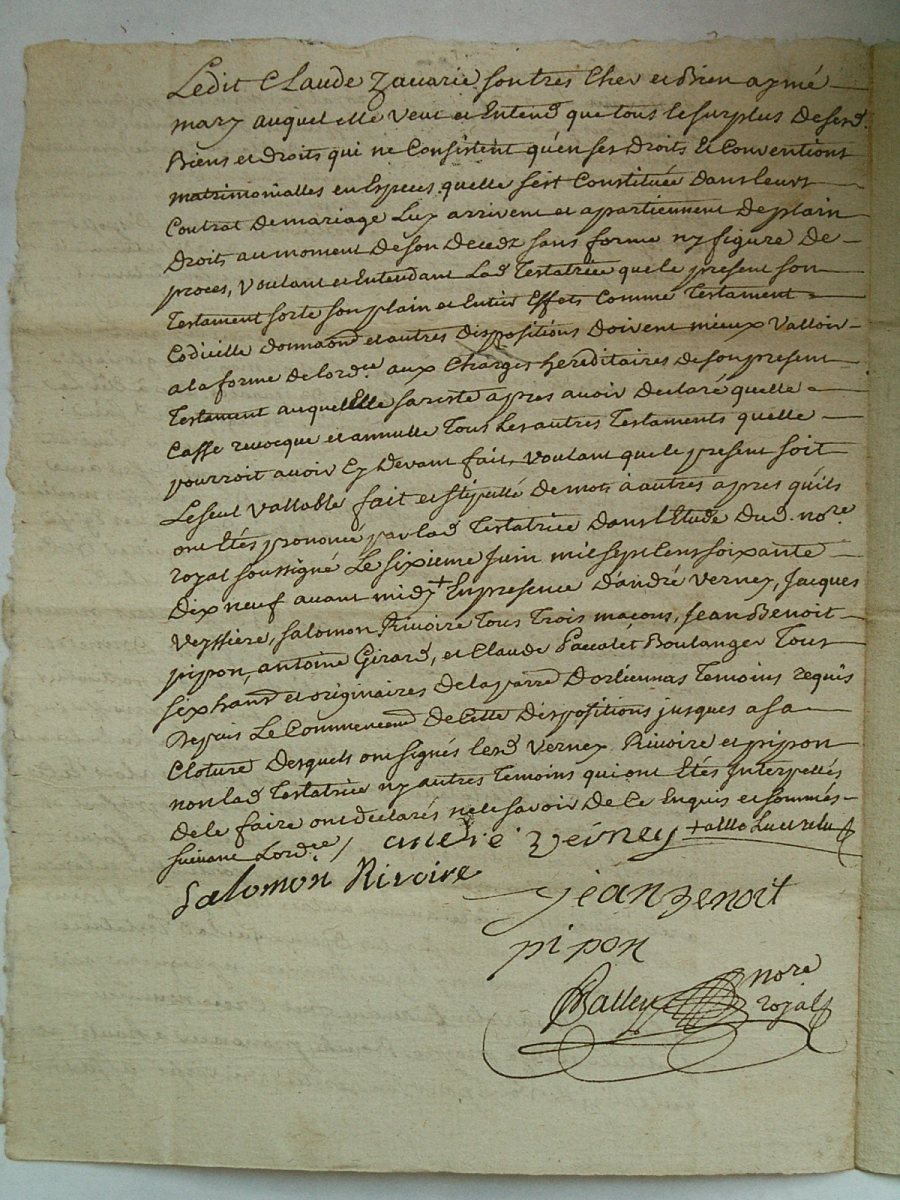 Ledit Claude Zacarie son tres cher et Bien aymé
mary auquel elle veut et Entend que tous le surplus de sesd.
Biens et Droits qui ne Consistent qu'en ses Droits et Conventions
matrimonialles en Especes quelle sest Constituée dans leurs
Contrat de mariage Luy arrivent et apartiennent de plain
Droits au moment de son Decedz sans forme ny figure de
proces, voulant et Entendant Lad Testatrice que le present son
Testament sorte son plain et Entier Effets Comme Testament
Codicille donnaon et autres dispositions doivent mieux valloir
a la forme de lord.ce aux Charges hereditaires de son present
Testament auquel Elle sareste apres avoir declaré quelle
Casse revocque et annulle Tous Les autres Testaments quelle
pourroit avoir Cy Devant fait, voulant que le present soit
Le seul vallable fait et stipullé de mots à autres apres quils
ont Etés prononcé par lad Testatrice dans l'Etude dud. no.re
royal soussigné Le sixieme Juin mil sept Cent soixante
Dix neuf avant midy + En presence D'andré verney, Jacques
veyssiere, salomon Rivoire Tous Trois maçons, Jean Benoit
pipon, antoine Girard, et Claude Paccalet Boulanger Tous
six hand et originaires de la parre D'orliennas Temoins requis
Depuis Le Commencemd de Cette dispositions jusques a sa
Cloture Desquels ont signés lesd verney Rivoire et pipon
non lad Testatrice ny autres Temoins qui ont Etés Interpellés
de le faire ont declarés ne le savoir de Ce Enquis et sommés
suivant Lord.ce / andré verney + allo Lu et relu
Salomon Rivoire
jean benoit
pipon
nore
royal